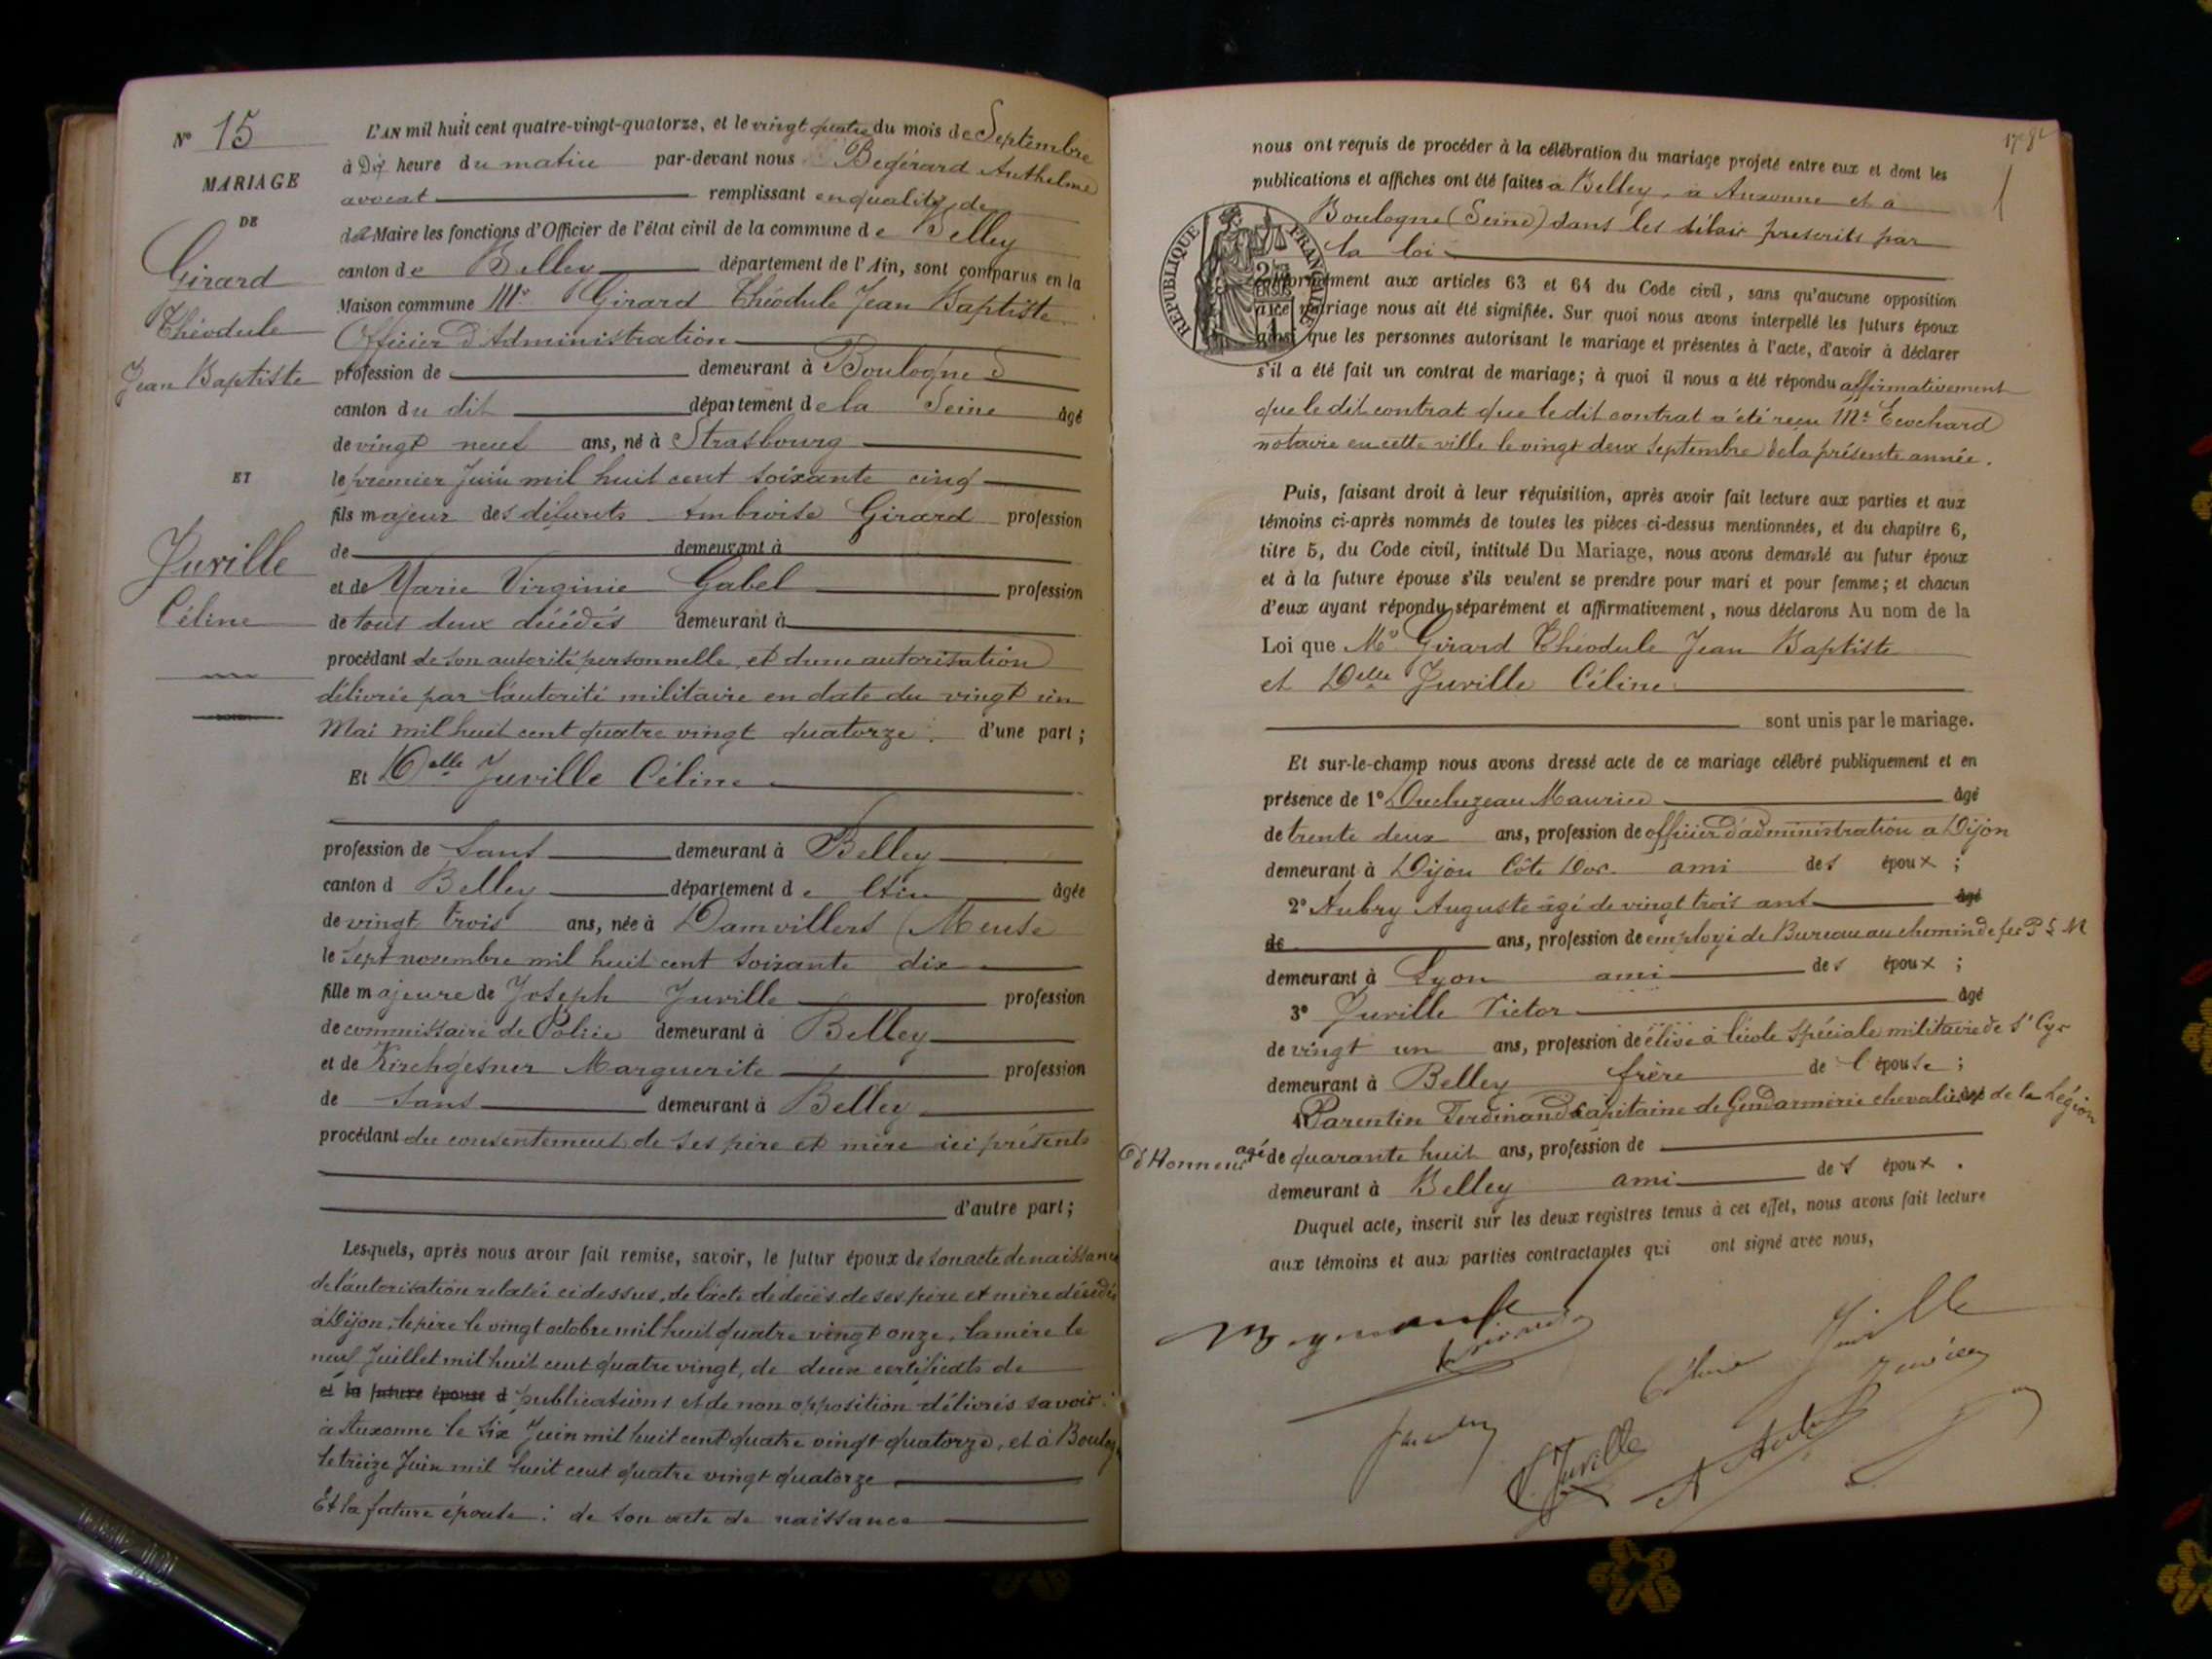 N° 15
MARIAGE
DE
Girard
Théodule
Jean Baptiste
ET
Juville
Céline
L'AN mil huit cent quatre-vingt-quatorze, et le vingt quatre du mois de Septembre
à Dix heure du matin par-devant nous Begérard Anthelme
avocat remplissant en qualité de
de Maire les fonctions d'Officier de l'état civil de la commune de Belley
canton de Belley département de l'Ain, sont comparus en la
Maison commune Mr Girard Théodule Jean Baptiste
Officier d'Administration
profession de demeurant à Boulogne
canton du dit département de la Seine âgé
de vingt neuf ans, né à Strasbourg
le premier Juin mil huit cent soixante cinq
fils majeur des défunts Ambroise Girard profession
de demeurant à
et de Marie Virginie Gabel profession
de tous deux décédés demeurant à
procédant de son autorité personnelle, et d'une autorisation
délivrée par l'autorité militaire en date du vingt un
Mai mil huit cent quatre vingt quatorze. d'une part;
Et Delle Juville Céline
profession de sans demeurant à Belley
canton d Belley département de Ain âgée
de vingt trois ans, née à Damvillers (Meuse
le sept novembre mil huit cent soixante dix
fille majeure de Joseph Juville profession
de commissaire de Police demeurant à Belley
et de Kirchgesner Marguerite profession
de sans demeurant à Belley
procédant du consentement de ses père et mère ici présents
d'autre part;
Lesquels, après nous avoir fait remise, savoir, le futur époux de son acte de naissance
de l'autorisation relatée ci dessus, de l'acte de décès de ses père et mère décédés
à Dijon, le père le vingt octobre mil huit quatre vingt onze, la mère le
neuf Juillet mil huit cent quatre vingt, de deux certificats de
et la future épouse d publications et de non opposition délivrés savoir:
à Auxonne le six Juin mil huit cent quatre vingt quatorze, et à Boulog
le treize Juin mil huit cent quatre vingt quatorze
Et la future épouse: de son acte de naissance
nous ont requis de procéder à la célébration du mariage projeté entre eux et dont les
publications et affiches ont été faites à Belley, à Auxonne et à
Boulogne (Seine) dans les délais prescrits par
la loi
RÉPUBLIQUE FRANÇAISE
conformément aux articles 63 et 64 du Code civil, sans qu'aucune opposition
à ce mariage nous ait été signifiée. Sur quoi nous avons interpellé les futurs époux
ainsi que les personnes autorisant le mariage et présentes à l'acte, d'avoir à déclarer
s'il a été fait un contrat de mariage; à quoi il nous a été répondu affirmativement
que le dit contrat que le dit contrat a été reçu Me Ecochard
notaire en cette ville le vingt deux septembre de la présente année.
Puis, faisant droit à leur réquisition, après avoir fait lecture aux parties et aux
témoins ci-après nommés de toutes les pièces ci-dessus mentionnées, et du chapitre 6,
titre 5, du Code civil, intitulé Du Mariage, nous avons demandé au futur époux
et à la future épouse s'ils veulent se prendre pour mari et pour femme; et chacun
d'eux ayant répondu séparément et affirmativement, nous déclarons Au nom de la
Loi que Mr Girard Théodule Jean Baptiste
et Delle Juville Céline
sont unis par le mariage.
Et sur-le-champ nous avons dressé acte de ce mariage célébré publiquement et en
présence de 1° Ducluzeau Maurice âgé
de trente deux ans, profession de officier d'administration à Dijon
demeurant à Dijon Côte Dor. ami des époux;
2° Aubry Auguste âgé de vingt trois ans âgé
de ans, profession de employé de Bureau au chemin de fer P L M
demeurant à Lyon ami des époux;
3° Juville Victor âgé
de vingt un ans, profession de élève à l'école spéciale militaire de St Cyr
demeurant à Belley frère de l'épouse;
4° Parentin Ferdinand capitaine de Gendarmerie chevalier de la Légion
d'Honneur âgé de quarante huit ans, profession de
demeurant à Belley ami des époux.
Duquel acte, inscrit sur les deux registres tenus à cet effet, nous avons fait lecture
aux témoins et aux parties contractantes qui ont signé avec nous,
Céline Juville
Juville